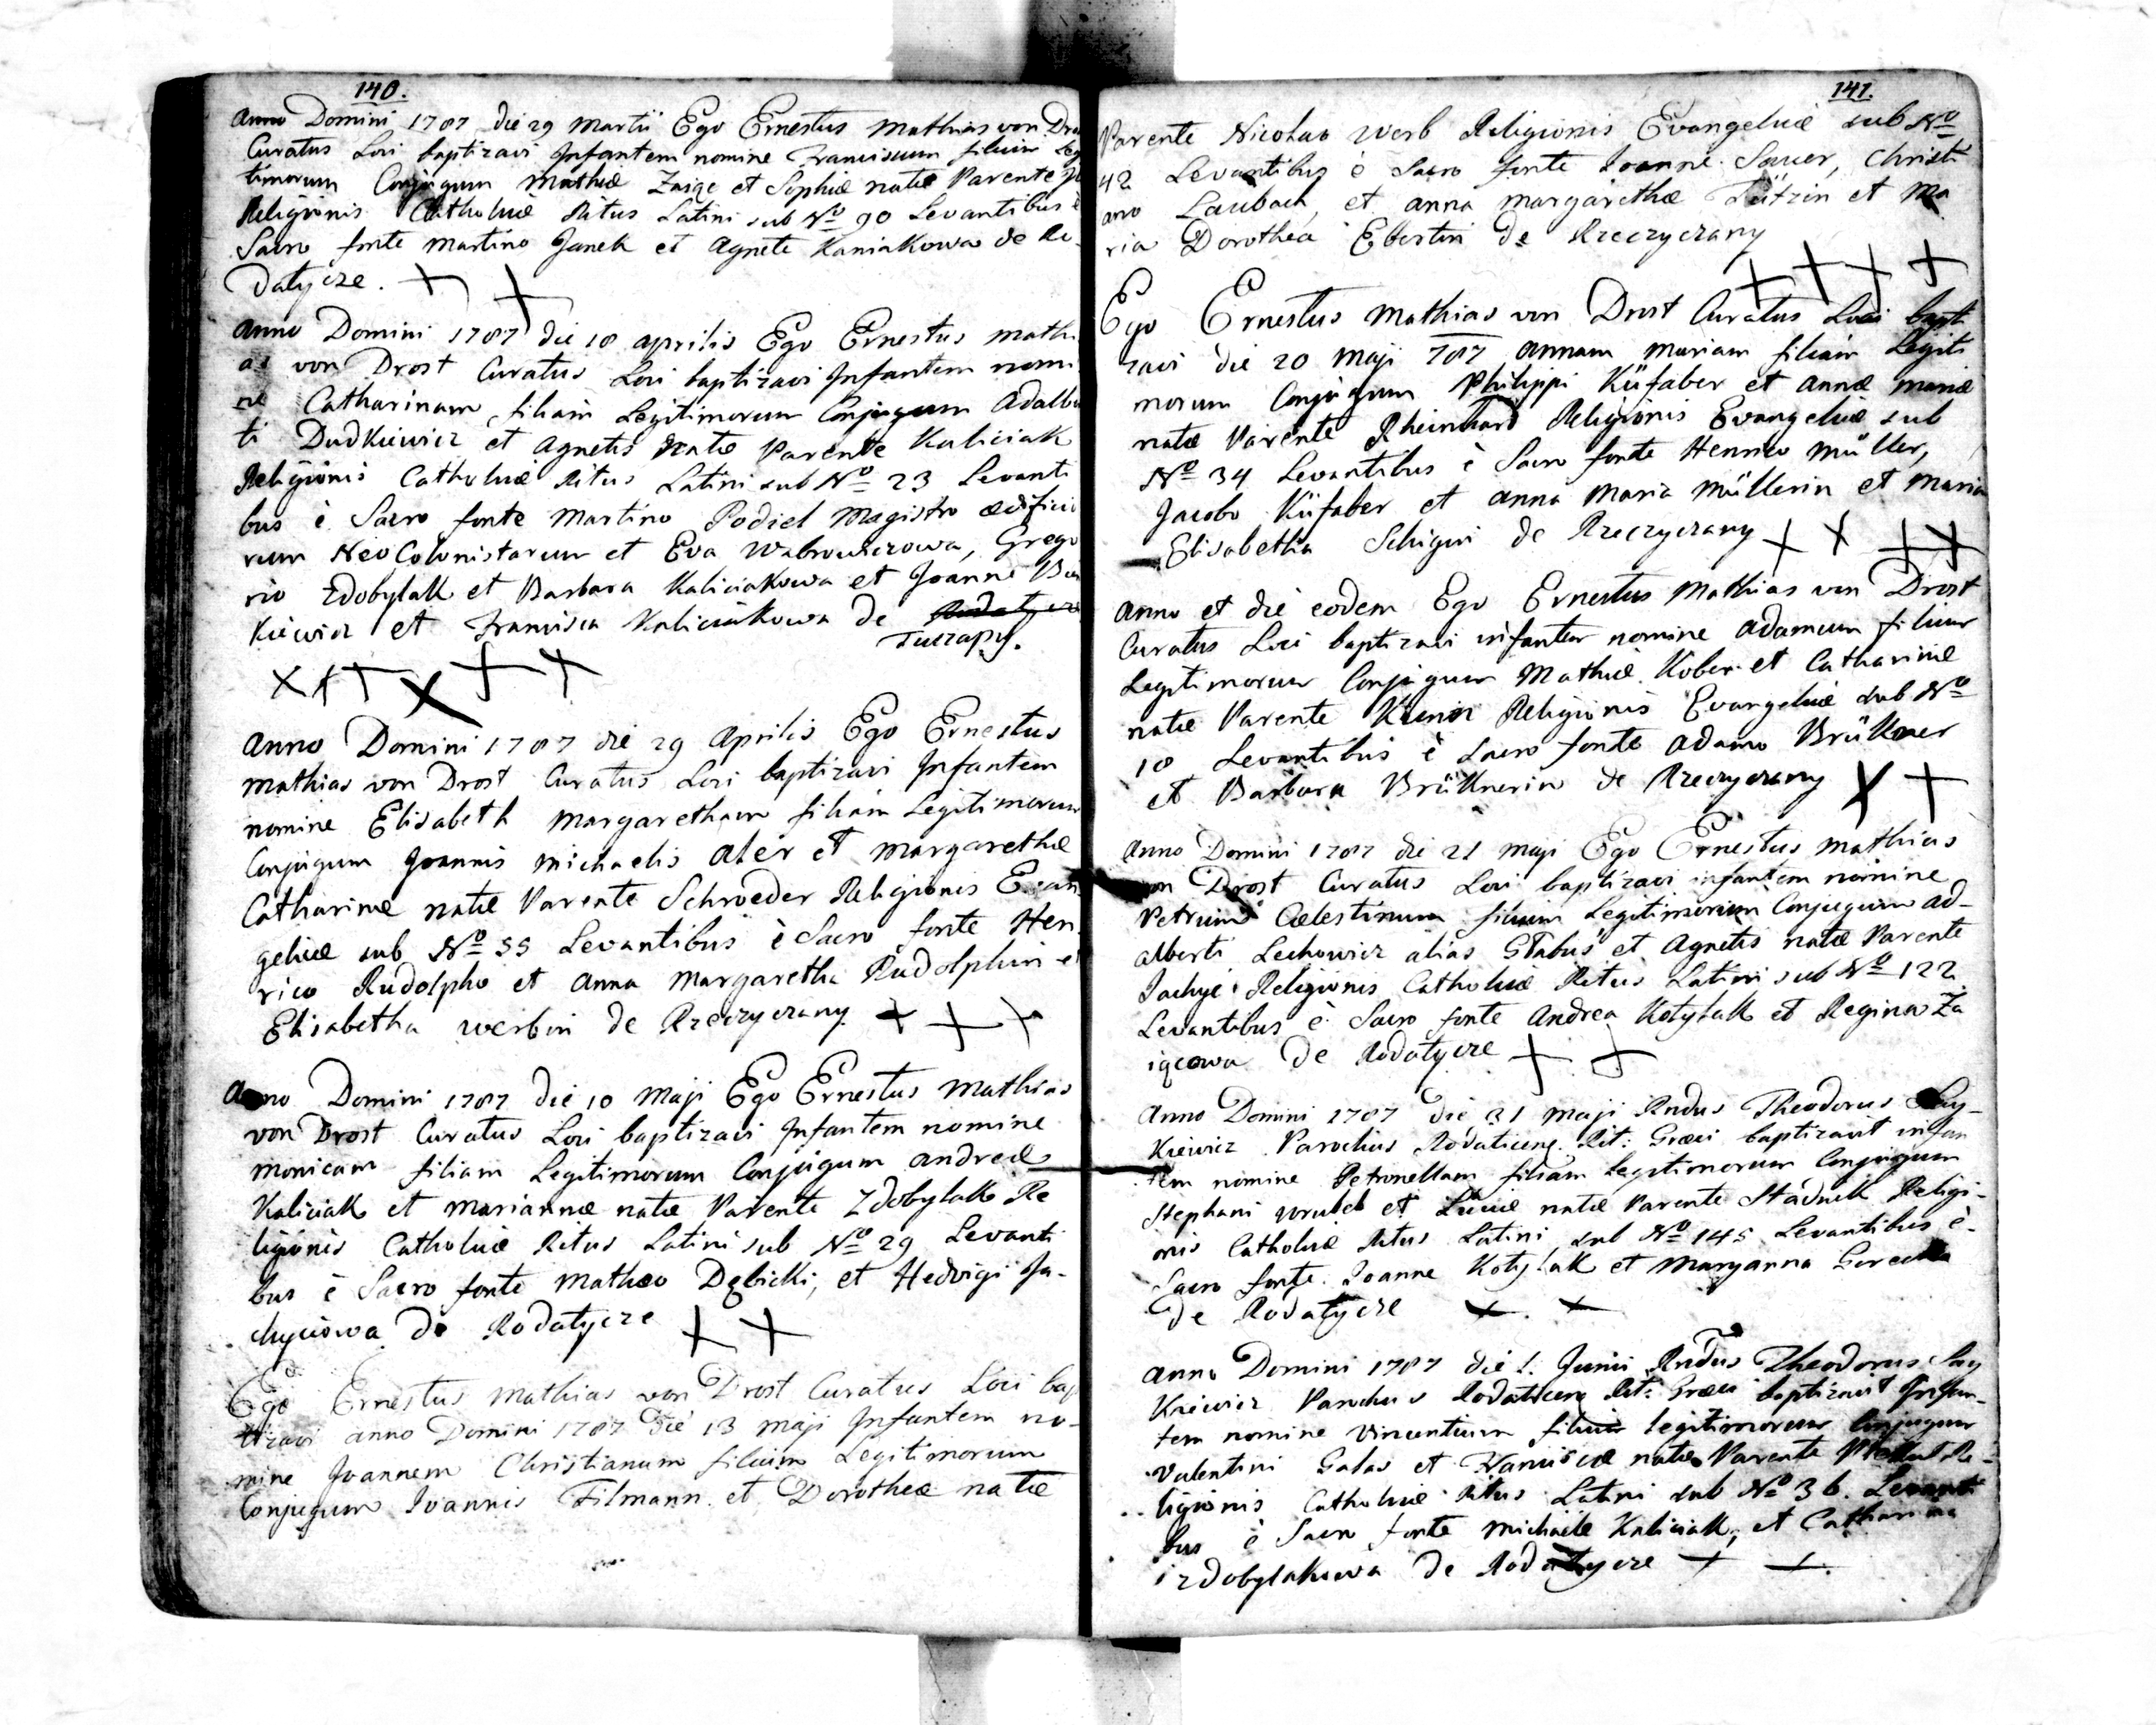 140.
Anno Domini 1787 die 29 Martii Ego Ernestus Mathias von
Curatus Loci baptizavi Infantem nomine Franciscum filium Leg
timorum Conjugum Mathiæ Zaige et Sophiæ natæ Parente
Religionis Catholicæ Ritus Latini sub No 90 Levantibus è
Sacro fonte Martino Janek et Agnete Kaniakowa de Ro-
datycze.
Anno Domini 1787 die 18 aprilis Ego Ernestus Mathi
as von Drost Curatus Loci baptizavi Infantem nomi
ne Catharinam, filiam Legitimorum Conjugum Adalber
ti Dudkiewicz et Agnetis natæ Parente Kaliciak
Religionis Catholicæ Ritus Latini sub No 23 Levanti
bus è Sacro fonte Martino Podiel Magistro ædificio
rum Neo Colonistarum et Eva Wabrowiczowa, Grego
rio Zdobylak et Barbara Kaliciakowa et Joanne
kiewicz et Francisca Kaliciakowa de Rodatycze
Tuczapy.
Anno Domini 1787 die 29 Aprilis Ego Ernestus
Mathias von Drost Curatus Loci baptizavi Infantem
nomine Elisabeth Margaretham filiam Legitimorum
Conjugum Joannis Michaelis Aler et Margarethæ
Catharinæ natæ Parente Schroeder Religionis Evan
gelicæ sub No 55 Levantibus è Sacro fonte Hen
rico Rudolpho et Anna Margaretha Rudolphin et
Elisabetha Werbin de Rzeczyczany
Anno Domini 1787 die 10 Maji Ego Ernestus Mathias
von Drost Curatus Loci baptizavi Infantem nomine
Monicam filiam Legitimorum Conjugum Andreæ
Kaliciak et Mariannæ natæ Parente Zdobylak Re
ligionis Catholicæ Ritus Latini sub No 29 Levanti
bus è Sacro fonte Mathæo Dębicki, et Hedvigi Ja-
chyciowa de Rodatycze
Ego Ernestus Mathias von Drost Curatus Loci bap
tizavi anno Domini 1787 die 13 Maji Infantem no-
mine Joannem Christianum filium Legitimorum
Conjugum Joannis Filmann et Dorotheæ natæ
141.
Parente Nicolao Werb Religionis Evangelicæ sub No
42 Levantibus è Sacro fonte Joanne Sauer, Christi
ano Laubach, et Anna Margarethæ et Ma
ria Dorothea Ebertin de Rzeczyczany
Ego Ernestus Mathias von Drost Curatus Loci bapti
zavi die 20 Maji 787 Annam Mariam filiam Legiti
morum Conjugum Philippi Küfaber et Annæ Mariæ
natæ Parente Rheinhard Religionis Evangelicæ sub
No 34 Levantibus è Sacro fonte Henrico Müller,
Jacobo Küfaber et Anna Maria Müllerin et Maria
Elisabetha Schigin de Rzeczyczany
Anno et die eodem Ego Ernestus Mathias von Drost
Curatus Loci baptizavi infantem nomine Adamum filium
Legitimorum Conjugum Mathiæ Kober et Catharinæ
natæ Parente Religionis Evangelicæ sub No
18 Levantibus è Sacro fonte Adamo Brükner
et Barbara Brüknerin de Rzeczyczany
Anno Domini 1787 die 21 Maji Ego Ernestus Mathias
von Drost Curatus Loci baptizavi infantem nomine
Petrum Cælestinum filium Legitimorum Conjugum Ad-
alberti Lechowicz alias Głabus et Agnetis natæ Parente
Jachyć Religionis Catholicæ Ritus Latini sub No 122
Levantibus è Sacro fonte Andrea Kotylak et Regina Za
igcowa de Rodatycze
Anno Domini 1787 die 31 Maji Rndus Theodorus Say-
kiewicz Parochus Rodaticen: Rit: Græci baptizavit infan
tem nomine Petronellam filiam Legitimorum Conjugum
Stephani Wrubel et Luciæ natæ Parente Stadnik Religi-
onis Catholicæ Ritus Latini, sub No 145 Levantibus è
Sacro fonte Joanne Kotylak et Maryanna
de Rodatycze
Anno Domini 1787 die 1. Junii Rndus Theodorus Say
kiewicz Parochus Rodaticen Rit: Græci baptizavit Infan-
tem nomine Vincentium filium legitimorum Conjugum
Valentini Galas et Franciscæ natæ Parente Re-
ligionis Catholicæ Ritus Latini sub No 36. Levanti
bus è Sacro fonte Michaele Kaliciak, et Catharina
Zdobylakowa de Rodatycze